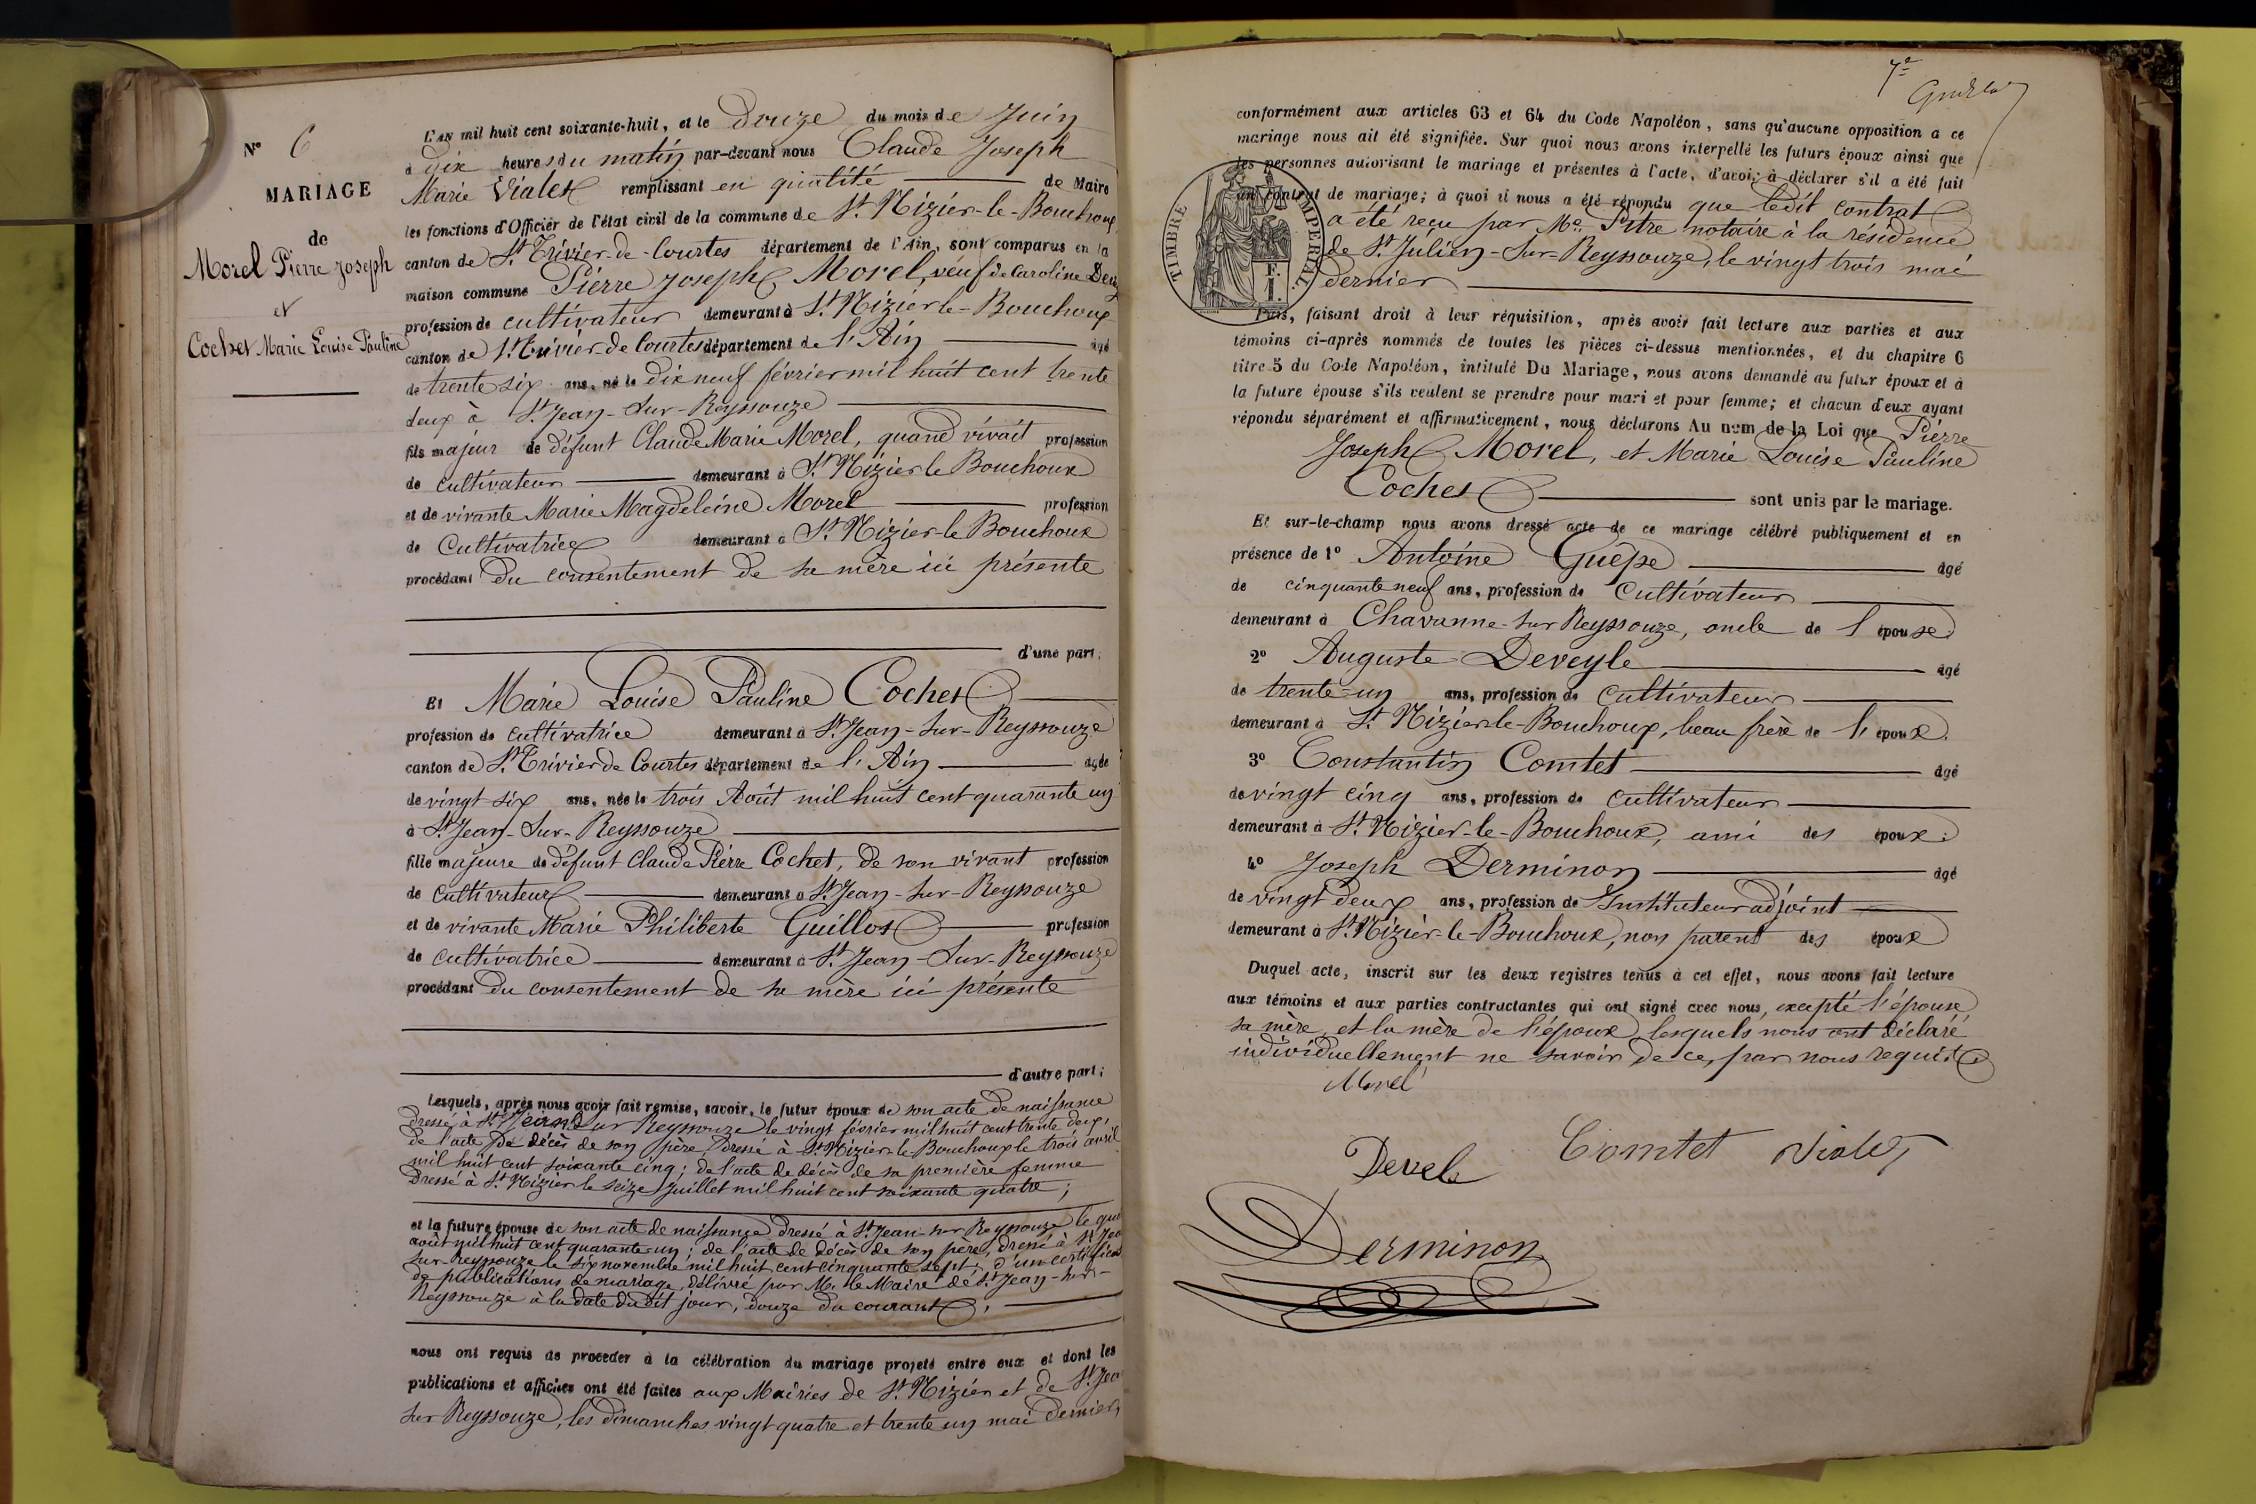 N° 6
MARIAGE
de
Morel Pierre Joseph
et
Cochet Marie Louise Pauline
L'an mil huit cent soixante-huit, et le Douze du mois de Juin
à dix heures du matin par-devant nous Claude Joseph
Marie Vialet remplissant en qualité de Maire
les fonctions d'Officier de l'état civil de la commune de St Nizier-le-Bouchoux
canton de St Trivier-de-Courtes département de l'Ain, sont comparus en la
maison commune Pierre Joseph Morel, veuf de Caroline
profession de cultivateur demeurant à St Nizier le-Bouchoux
canton de St Trivier-de Courtes département de l'Ain âgé
de trente six ans, né le dix neuf février mil huit cent trente
deux à St Jean-Sur-Reyssouze
fils majeur de défunt Claude Marie Morel, quand vivait profession
de cultivateur demeurant à St Nizier le Bouchoux
et de vivante Marie Magdeleine Morel profession
de Cultivatrice demeurant à St Nizier-le Bouchoux
procédant du consentement de sa mère ici présente
d'une part;
Et Marie Louise Pauline Cochet
profession de cultivatrice demeurant à St Jean-Sur-Reyssouze
canton de St Trivier de Courtes département de l'Ain âgée
de vingt six ans, née le trois Août mil huit cent quarante un
à St Jean-Sur-Reyssouze
fille majeure de défunt Claude Pierre Cochet, de son vivant profession
de cultivateur demeurant à St Jean-Sur-Reyssouze
et de vivante Marie Philiberte Guillot profession
de cultivatrice demeurant à St Jean-Sur-Reyssouze
procédant du consentement de sa mère ici présente
d'autre part;
Lesquels, après nous avoir fait remise, savoir, le futur époux de son acte de naissance
dressé à St Jean Sur Reyssouze le vingt février mil huit cent trente deux,
de l'acte de décès de son père, dressé à St Nizier-le-Bouchoux le trois avril
mil huit cent soixante cinq; de l'acte de décès de sa première femme
dressé à St Nizier le seize Juillet mil huit cent soixante quatre;
et la future épouse de son acte de naissance dressé à St Jean-sur Reyssouze le
août mil huit cent quarante-un; de l'acte de décès de son père, dressé à St Jean
sur-Reyssouze le six novembre mil huit cent cinquante sept; d'un certificat
de publications de mariage, délivré par Mr le Maire de St Jean-sur-
Reyssouze à la date dudit jour, douze du courant;
nous ont requis de procéder à la célébration du mariage projeté entre eux et dont les
publications et affiches ont été faites aux Mairies de St Nizier et de St Jean
sur Reyssouze, les dimanches vingt quatre et trente un mai dernier,
7e
conformément aux articles 63 et 64 du Code Napoléon, sans qu'aucune opposition a ce
mariage nous ait été signifiée. Sur quoi nous avons interpellé les futurs époux ainsi que
les personnes autorisant le mariage et présentes à l'acte, d'avoir à déclarer s'il a été fait
un contrat de mariage; à quoi il nous a été répondu que ledit contrat
a été reçu par Me Pitre notaire à la résidence
de St Julien-Sur-Reyssouze, le vingt trois mai
dernier
TIMBRE IMPERIAL.
Puis, faisant droit à leur réquisition, après avoir fait lecture aux parties et aux
témoins ci-après nommés de toutes les pièces ci-dessus mentionnées, et du chapitre 6
titre 5 du Code Napoléon, intitulé Du Mariage, nous avons demandé au futur époux et à
la future épouse s'ils veulent se prendre pour mari et pour femme; et chacun d'eux ayant
répondu séparément et affirmativement, nous déclarons Au nom de la Loi que Pierre
Joseph Morel, et Marie Louise Pauline
Cochet sont unis par le mariage.
Et sur-le-champ nous avons dressé acte de ce mariage célébré publiquement et en
présence de 1° Antoine Guêpe âgé
de cinquante neuf ans, profession de Cultivateur
demeurant à Chavanne-Sur Reyssouze, oncle de l'épouse.
2° Auguste Deveyle âgé
de trente-un ans, profession de cultivateur
demeurant à St Nizier-le-Bouchoux, beau frère de l'époux.
3° Constantin Comtet âgé
de vingt cinq ans, profession de cultivateur
demeurant à St Nizier-le-Bouchoux, ami des époux.
4° Joseph Derminon âgé
de vingt deux ans, profession de Instituteur adjoint
demeurant à St Nizier-le-Bouchoux, non parent des époux
Duquel acte, inscrit sur les deux registres tenus à cet effet, nous avons fait lecture
aux témoins et aux parties contractantes qui ont signé avec nous, excepté l'épouse
sa mère, et la mère de l'époux, lesquels nous ont déclaré
individuellement ne savoir de ce, par nous requis
Morel
Comtet Vialet
Devele
Derminon